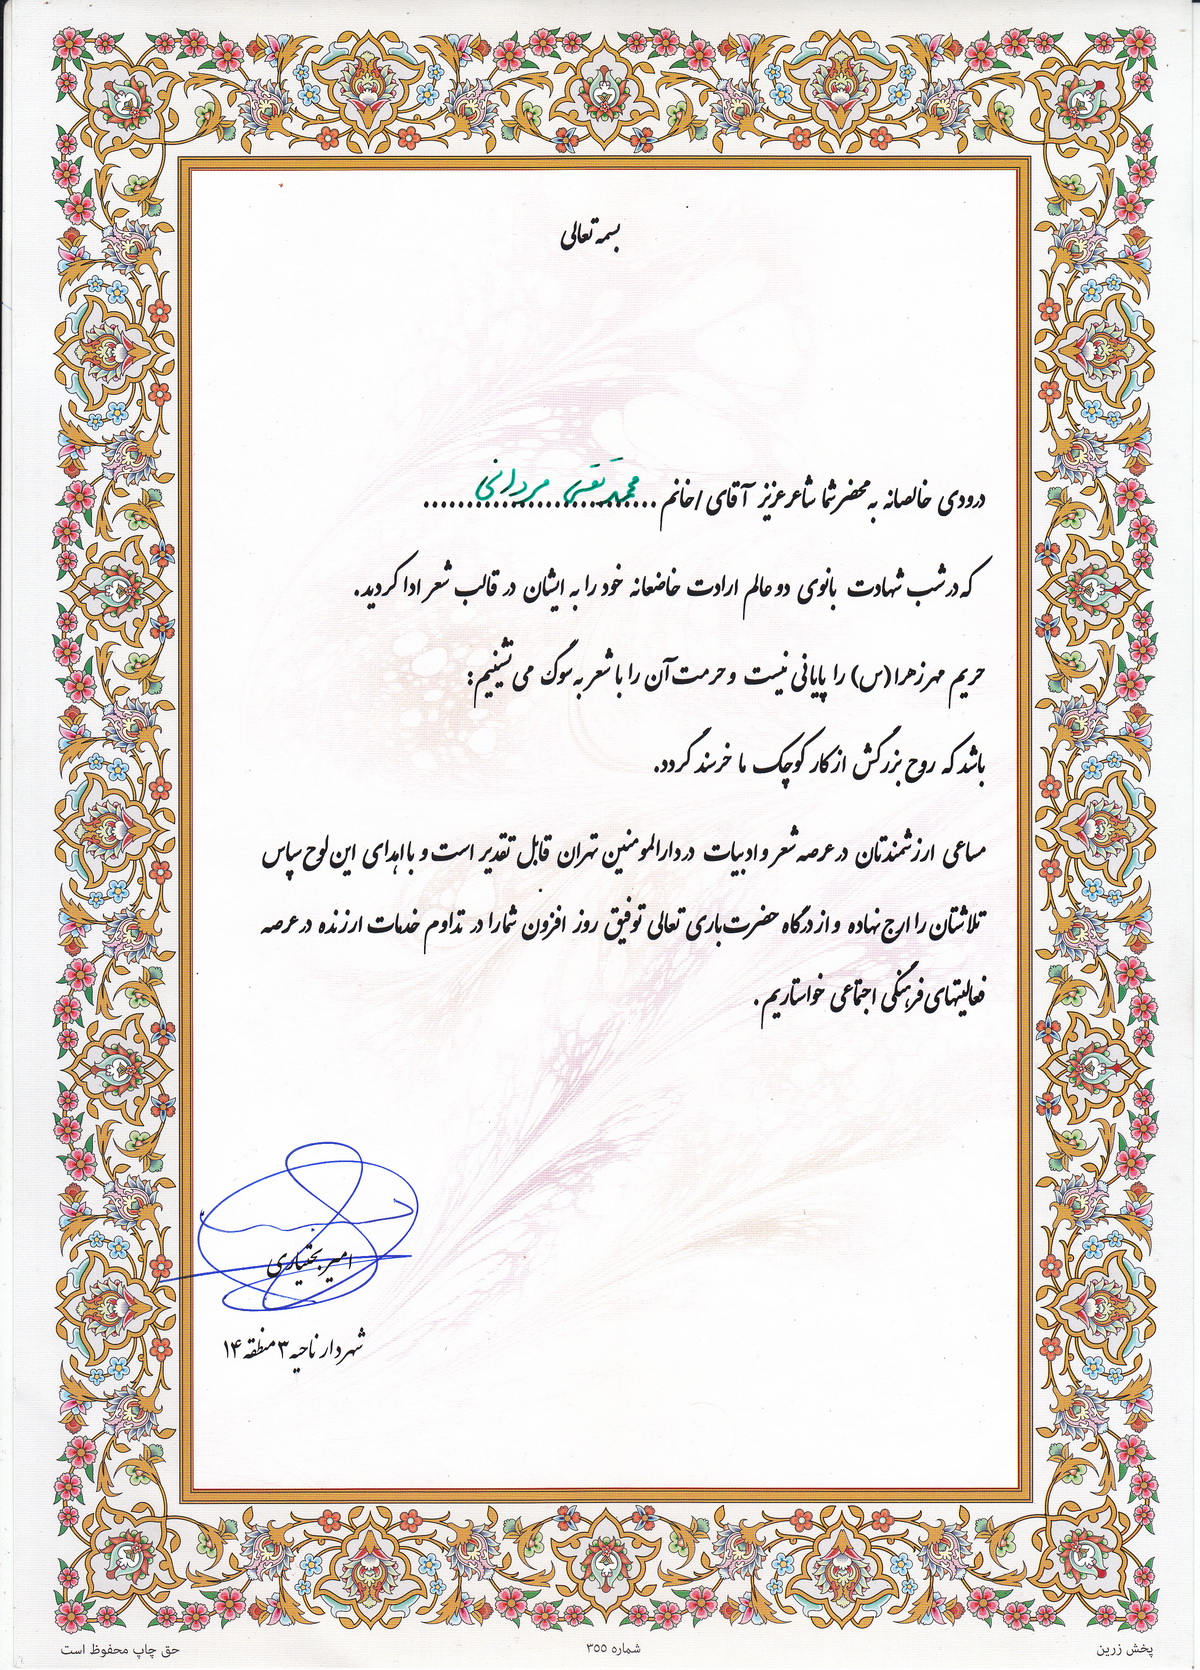 بسمه تعالی
درودی خالصانه به محضر شما شاعر عزیز آقای / خانم محمد تقی مردانی
که در شب شهادت بانوی دو عالم ارادت خاضعانه خود را به ایشان در قالب شعر ادا کردید.
حریم مهر زهرا (س) را پایانی نیست و حرمت آن را با شعر به سوگ می نشینیم:
باشد که روح بزرگش از کار کوچک ما خرسند گردد.
مساعی ارزشمندتان در عرصه شعر و ادبیات در دارالمومنین تهران قابل تقدیر است و با اهدای این لوح سپاس
تلاشتان را ارج نهاده و از درگاه حضرت باری تعالی توفیق روز افزون شما را در تداوم خدمات ارزنده در عرصه
فعالیتهای فرهنگی اجتماعی خواستاریم .
امیر بختیاری
شهردار ناحیه ۳ منطقه ۱۴
پخش زرین
شماره ۳۵۵
حق چاپ محفوظ است